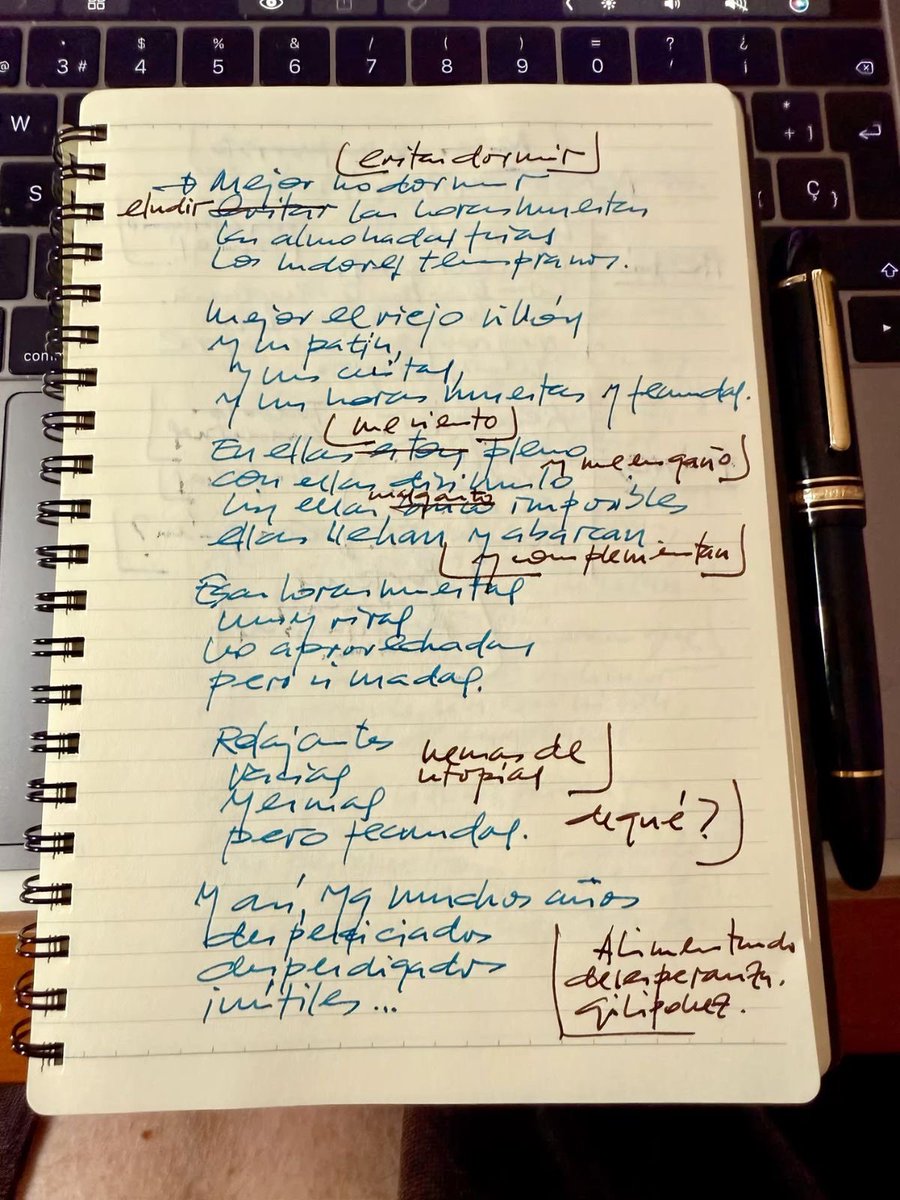 (evitar dormir)
→ Mejor no dormir
eludir evitar las horas muertas
las almohadas frias
los sudores tempranos.
Mejor el viejo sillón
y su patín,
y sus cuitas,
y sus horas muertas y fecundas.
(me siento)
En ellas estoy pleno
y me engaño)
con ellas disimulo
malgasto
sin ellas imposible
ellas llenan y abarcan
(y complementan)
Esas horas muertas
muy vivas
no aprovechadas
pero si madas.
Relajantes
Vacias
yermas
pero fecundas.
yemas de
utopias)
de qué?)
Y así, ya muchos años
desperdiciados
desperdigados
inútiles...
Alimentando
desesperanza.
gilipollez.
# 3 $ 4 % 5 & 6 / 7 ( 8 ) 9 = 0 ? ' ¿ ¡
W
* + ]
S
Ç